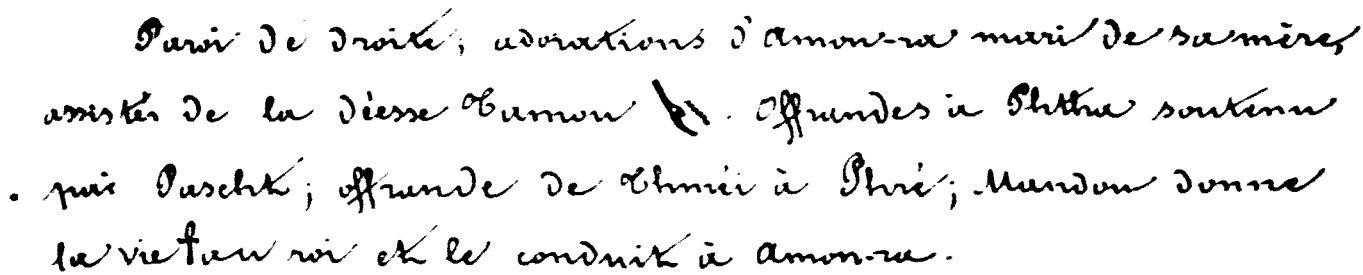 Paroi de droite; adorations d'Amon-ra mari de sa mère,
assisté de la déesse Tamou. Offrandes à Phtha soutenu
par Pascht; offrande de Thméi à Phré; Mandou donne
la vie au roi et le conduit à Amon-ra.